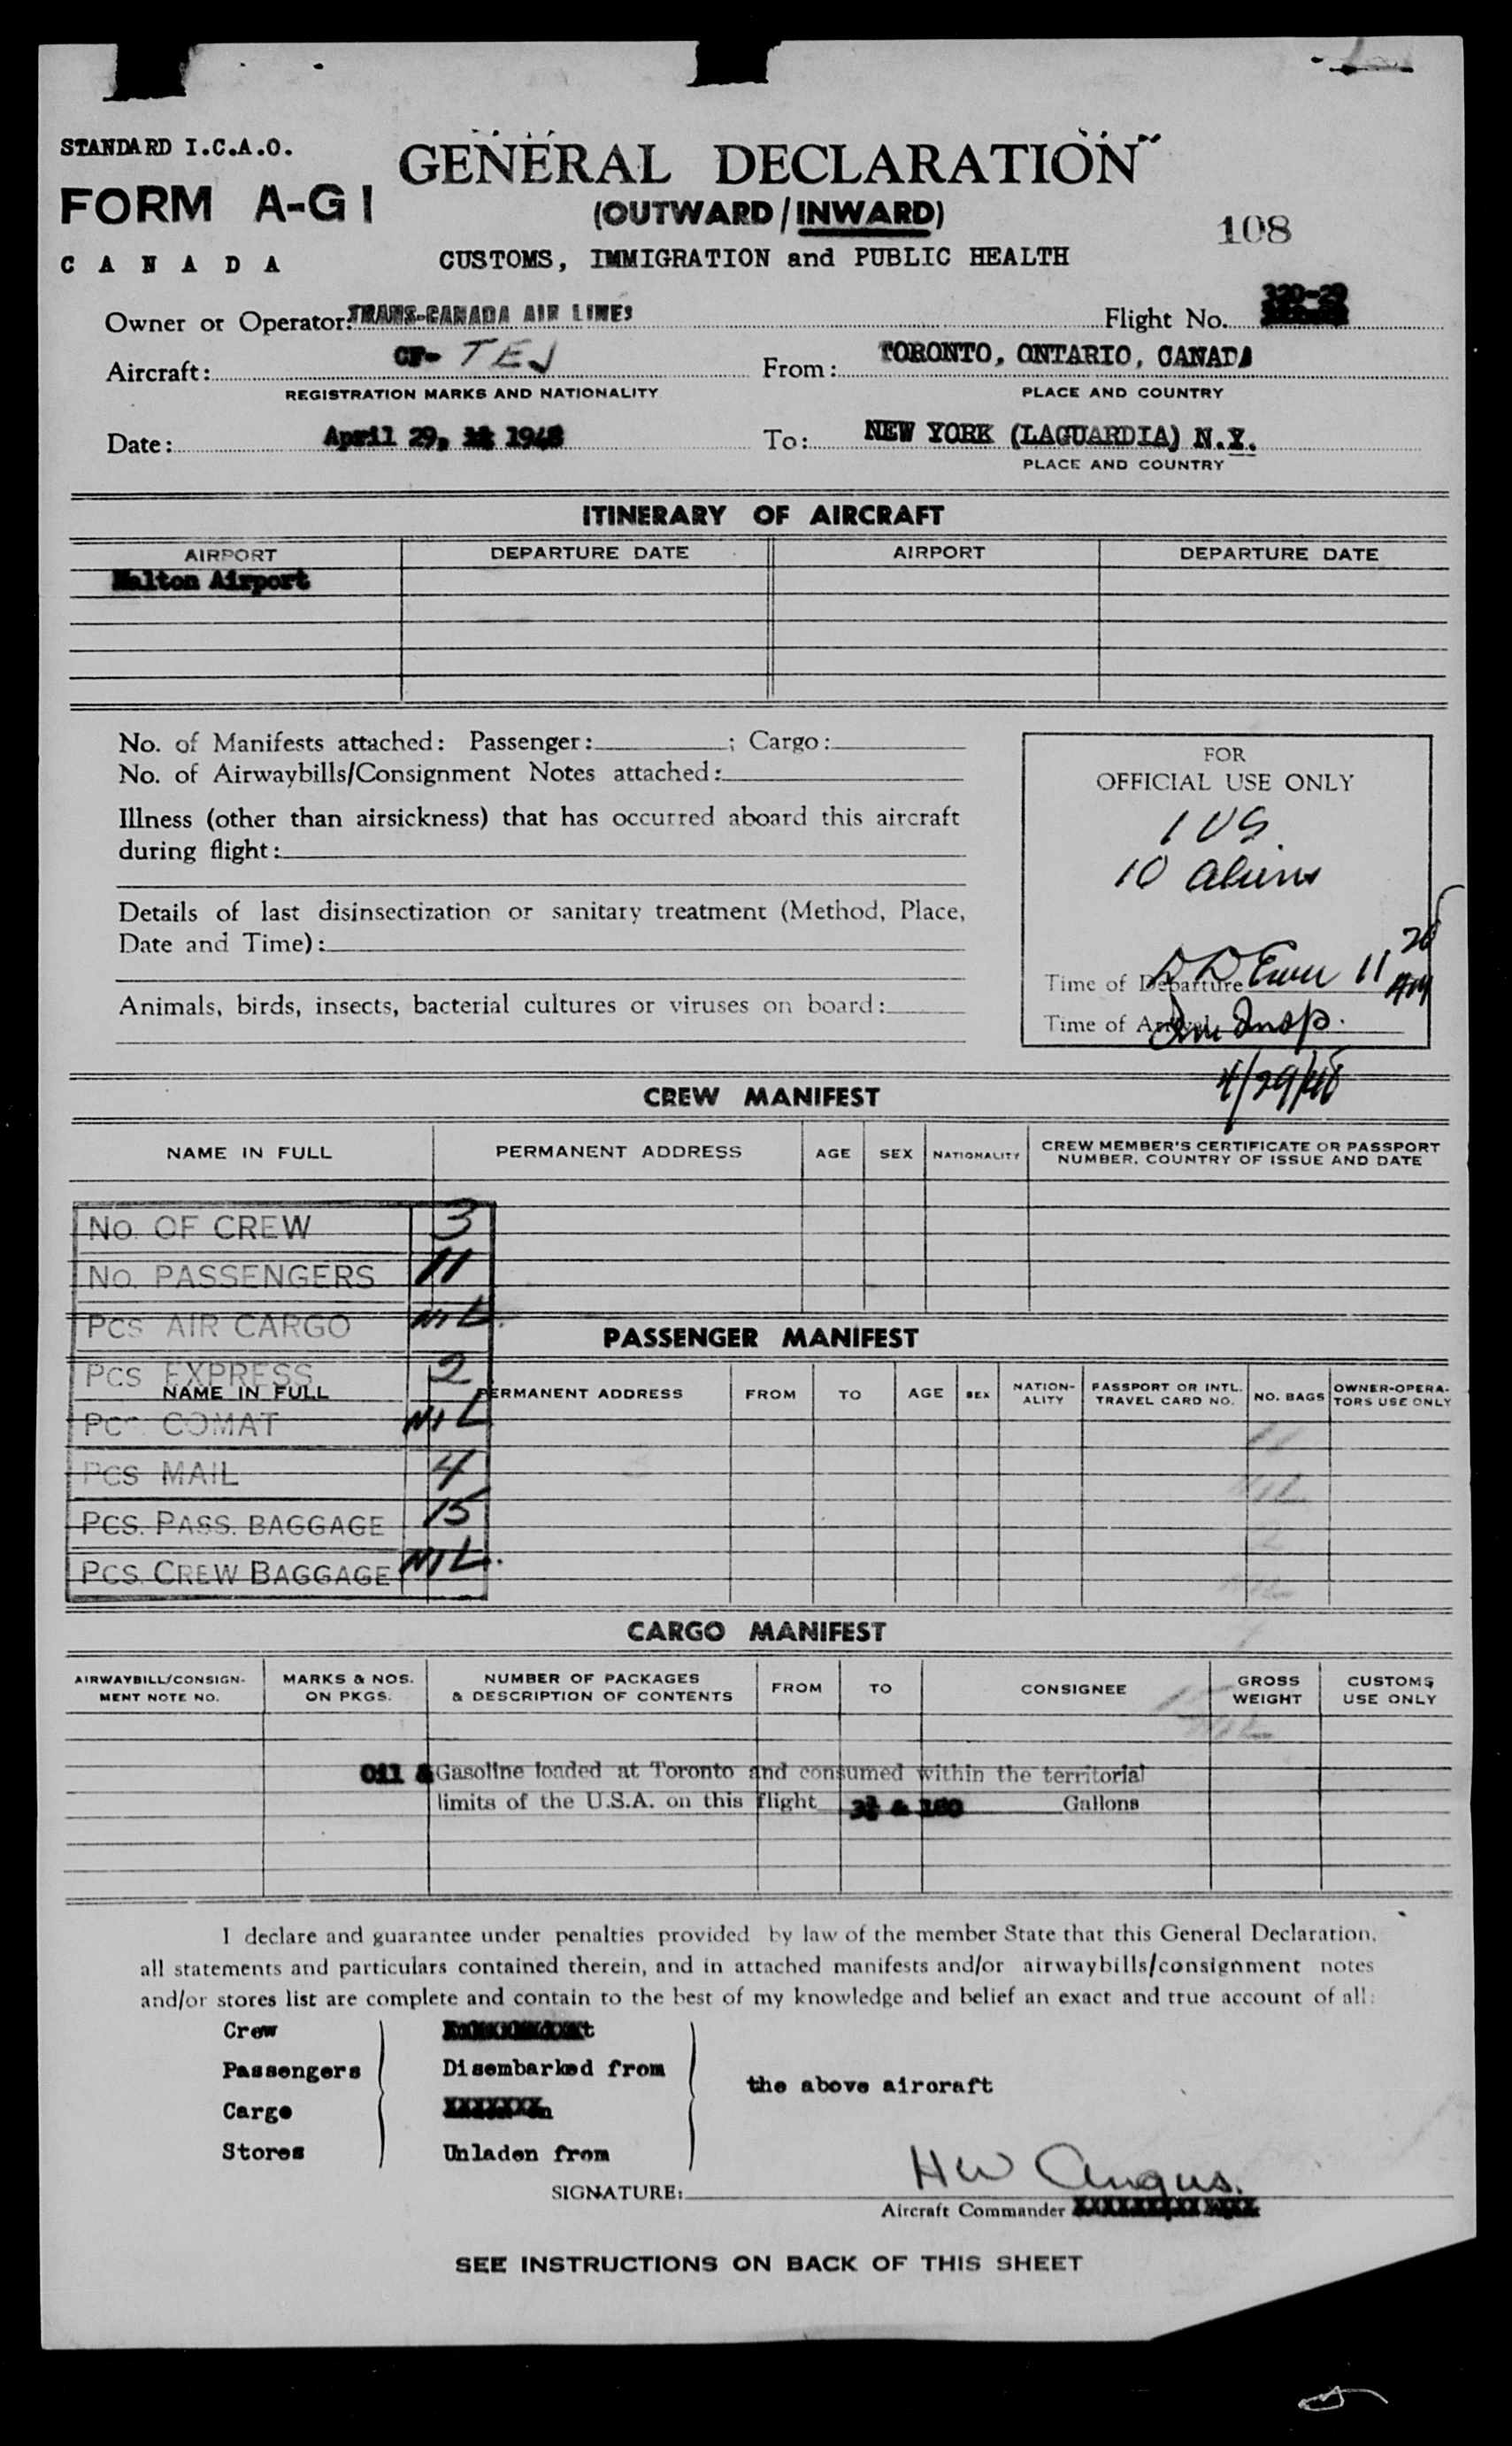 STANDARD I.C.A.O.
GENERAL DECLARATION
FORM A-G1
(OUTWARD/INWARD)
108
CANADA
CUSTOMS, IMMIGRATION and PUBLIC HEALTH
Owner or Operator: TRANS-CANADA AIR LINES
Flight No. 320-29
Aircraft: CF- TEJ
From: TORONTO, ONTARIO, CANADA
REGISTRATION MARKS AND NATIONALITY
PLACE AND COUNTRY
Date: April 29, 1948
To: NEW YORK (LAGUARDIA) N.Y.
PLACE AND COUNTRY
ITINERARY OF AIRCRAFT
AIRPORT DEPARTURE DATE AIRPORT DEPARTURE DATE
Malton Airport
No. of Manifests attached: Passenger: ; Cargo:
No. of Airwaybills/Consignment Notes attached:
Illness (other than airsickness) that has occurred aboard this aircraft
during flight:
Details of last disinsectization or sanitary treatment (Method, Place,
Date and Time):
Animals, birds, insects, bacterial cultures or viruses on board:
FOR
OFFICIAL USE ONLY
1 US.
10 aliens
Time of Departure 11 20 AM
Time of Arrival Insp.
4/29/48
CREW MANIFEST
NAME IN FULL PERMANENT ADDRESS AGE SEX NATIONALITY CREW MEMBER'S CERTIFICATE OR PASSPORT
NUMBER, COUNTRY OF ISSUE AND DATE
No. OF CREW 3
No. PASSENGERS 11
PCS AIR CARGO NIL.
PASSENGER MANIFEST
PCS EXPRESS 2
NAME IN FULL PERMANENT ADDRESS FROM TO AGE SEX NATION-
ALITY PASSPORT OR INTL.
TRAVEL CARD NO. NO. BAGS OWNER-OPERA-
TORS USE ONLY
PCS COMAT NIL
PCS MAIL 4
PCS. PASS. BAGGAGE 15
PCS. CREW BAGGAGE NIL.
CARGO MANIFEST
AIRWAYBILL/CONSIGN-
MENT NOTE NO. MARKS & NOS.
ON PKGS. NUMBER OF PACKAGES
& DESCRIPTION OF CONTENTS FROM TO CONSIGNEE GROSS
WEIGHT CUSTOMS
USE ONLY
Oil & Gasoline loaded at Toronto and consumed within the territorial
limits of the U.S.A. on this flight 3½ & 160 Gallons
I declare and guarantee under penalties provided by law of the member State that this General Declaration,
all statements and particulars contained therein, and in attached manifests and/or airwaybills/consignment notes
and/or stores list are complete and contain to the best of my knowledge and belief an exact and true account of all:
Crew
Passengers Disembarked from
the above aircraft
Cargo
Stores Unladen from
SIGNATURE: HW Angus.
Aircraft Commander
SEE INSTRUCTIONS ON BACK OF THIS SHEET